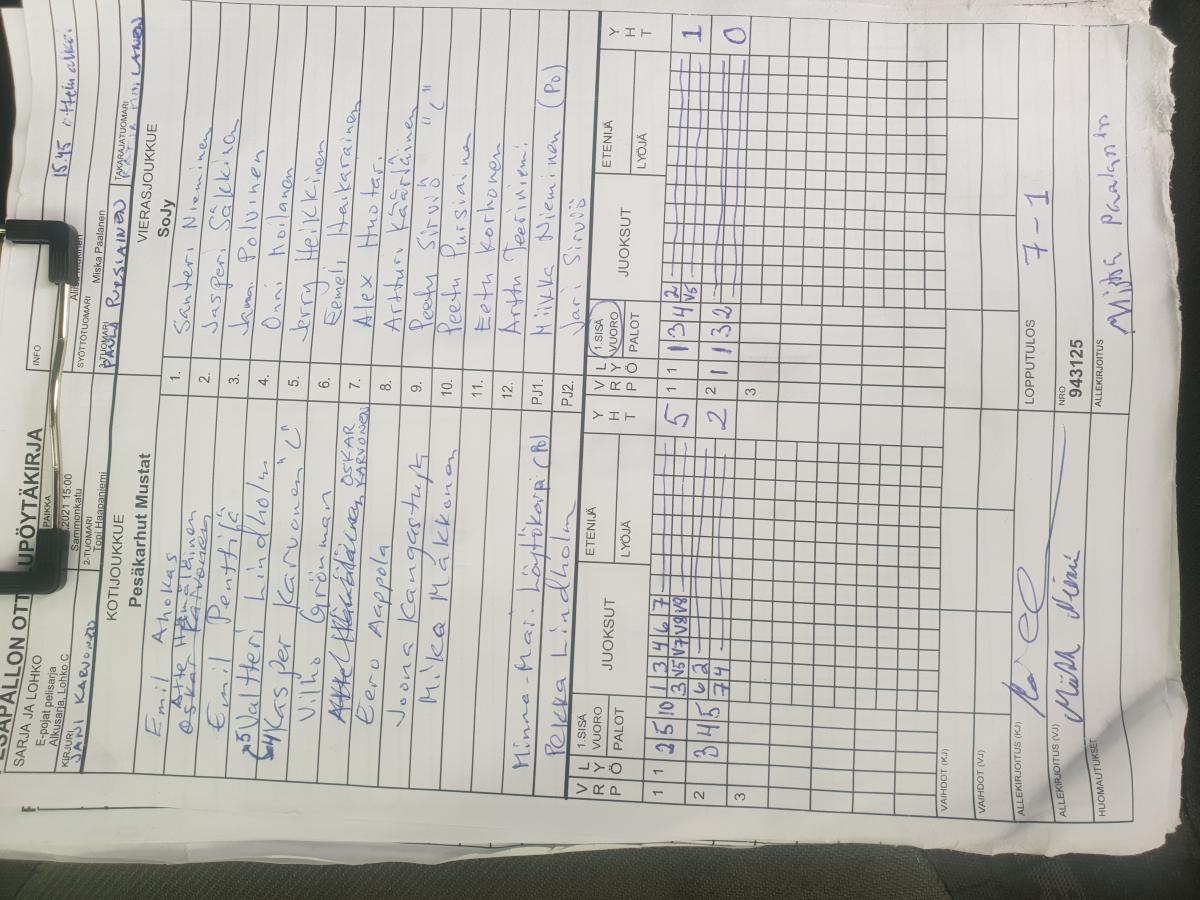 PESÄPALLON OTT UPÖYTÄKIRJA
SARJA JA LOHKO
PAIKKA
INFO
15.45
E-pojat pelisarja
Alkusarja, Lohko C
.2021 15:00
Sammonkatu
SYÖTTÖTUOMARI
Miska Paalanen
KIRJURI
JANI KARVONEN
2-TUOMARI
Topi Haapaniemi
3-TUOMARI
PAULA PURSIAINEN
TAKARAJATUOMARI
KOTIJOUKKUE
VIERASJOUKKUE
Pesäkarhut Mustat
SoJy
Emil Ahokas 1. Santeri Nieminen
Atte Hämäläinen 2. Jasperi Säkkinen
Emil Penttilä 3. Polvinen
Valtteri Lindholm 4. Onni Moilanen
Kasper Karvonen "C" 5. Jerry Heikkinen
Vilho Grönman 6. Eemeli Haikarainen
OSKAR KARVONEN 7. Alex Huotari
Eero Aappola 8. Artturi Kääriäinen
Joona Kangastupa 9. Peetu Sirviö "C"
Miika Mäkkonen 10. Peetu Pursiainen
11. Eetu Korhonen
12. Arttu Teeriniemi
Minna-Mai. (PO) PJ1. Miikka Nieminen (PO)
Pekka Lindholm PJ2. Jari Sirviö
V R P L Y Ö 1.SISÄ VUORO PALOT JUOKSUT ETENIJÄ LYÖJÄ Y H T V R P L Y Ö 1.SISÄ VUORO PALOT JUOKSUT ETENIJÄ LYÖJÄ Y H T
1 1 2 5 10 1 3 4 6 7 5 1 1 1 3 4 2 1
3 V5 V7 V8 V8 V5
2 3 4 5 6 2 2 2 1 1 3 2 0
7 4
3 3
VAIHDOT (KJ)
VAIHDOT (VJ)
ALLEKIRJOITUS (KJ)
LOPPUTULOS
7-1
ALLEKIRJOITUS (VJ)
NRO
943125
HUOMAUTUKSET
ALLEKIRJOITUS
Miska Paalanen